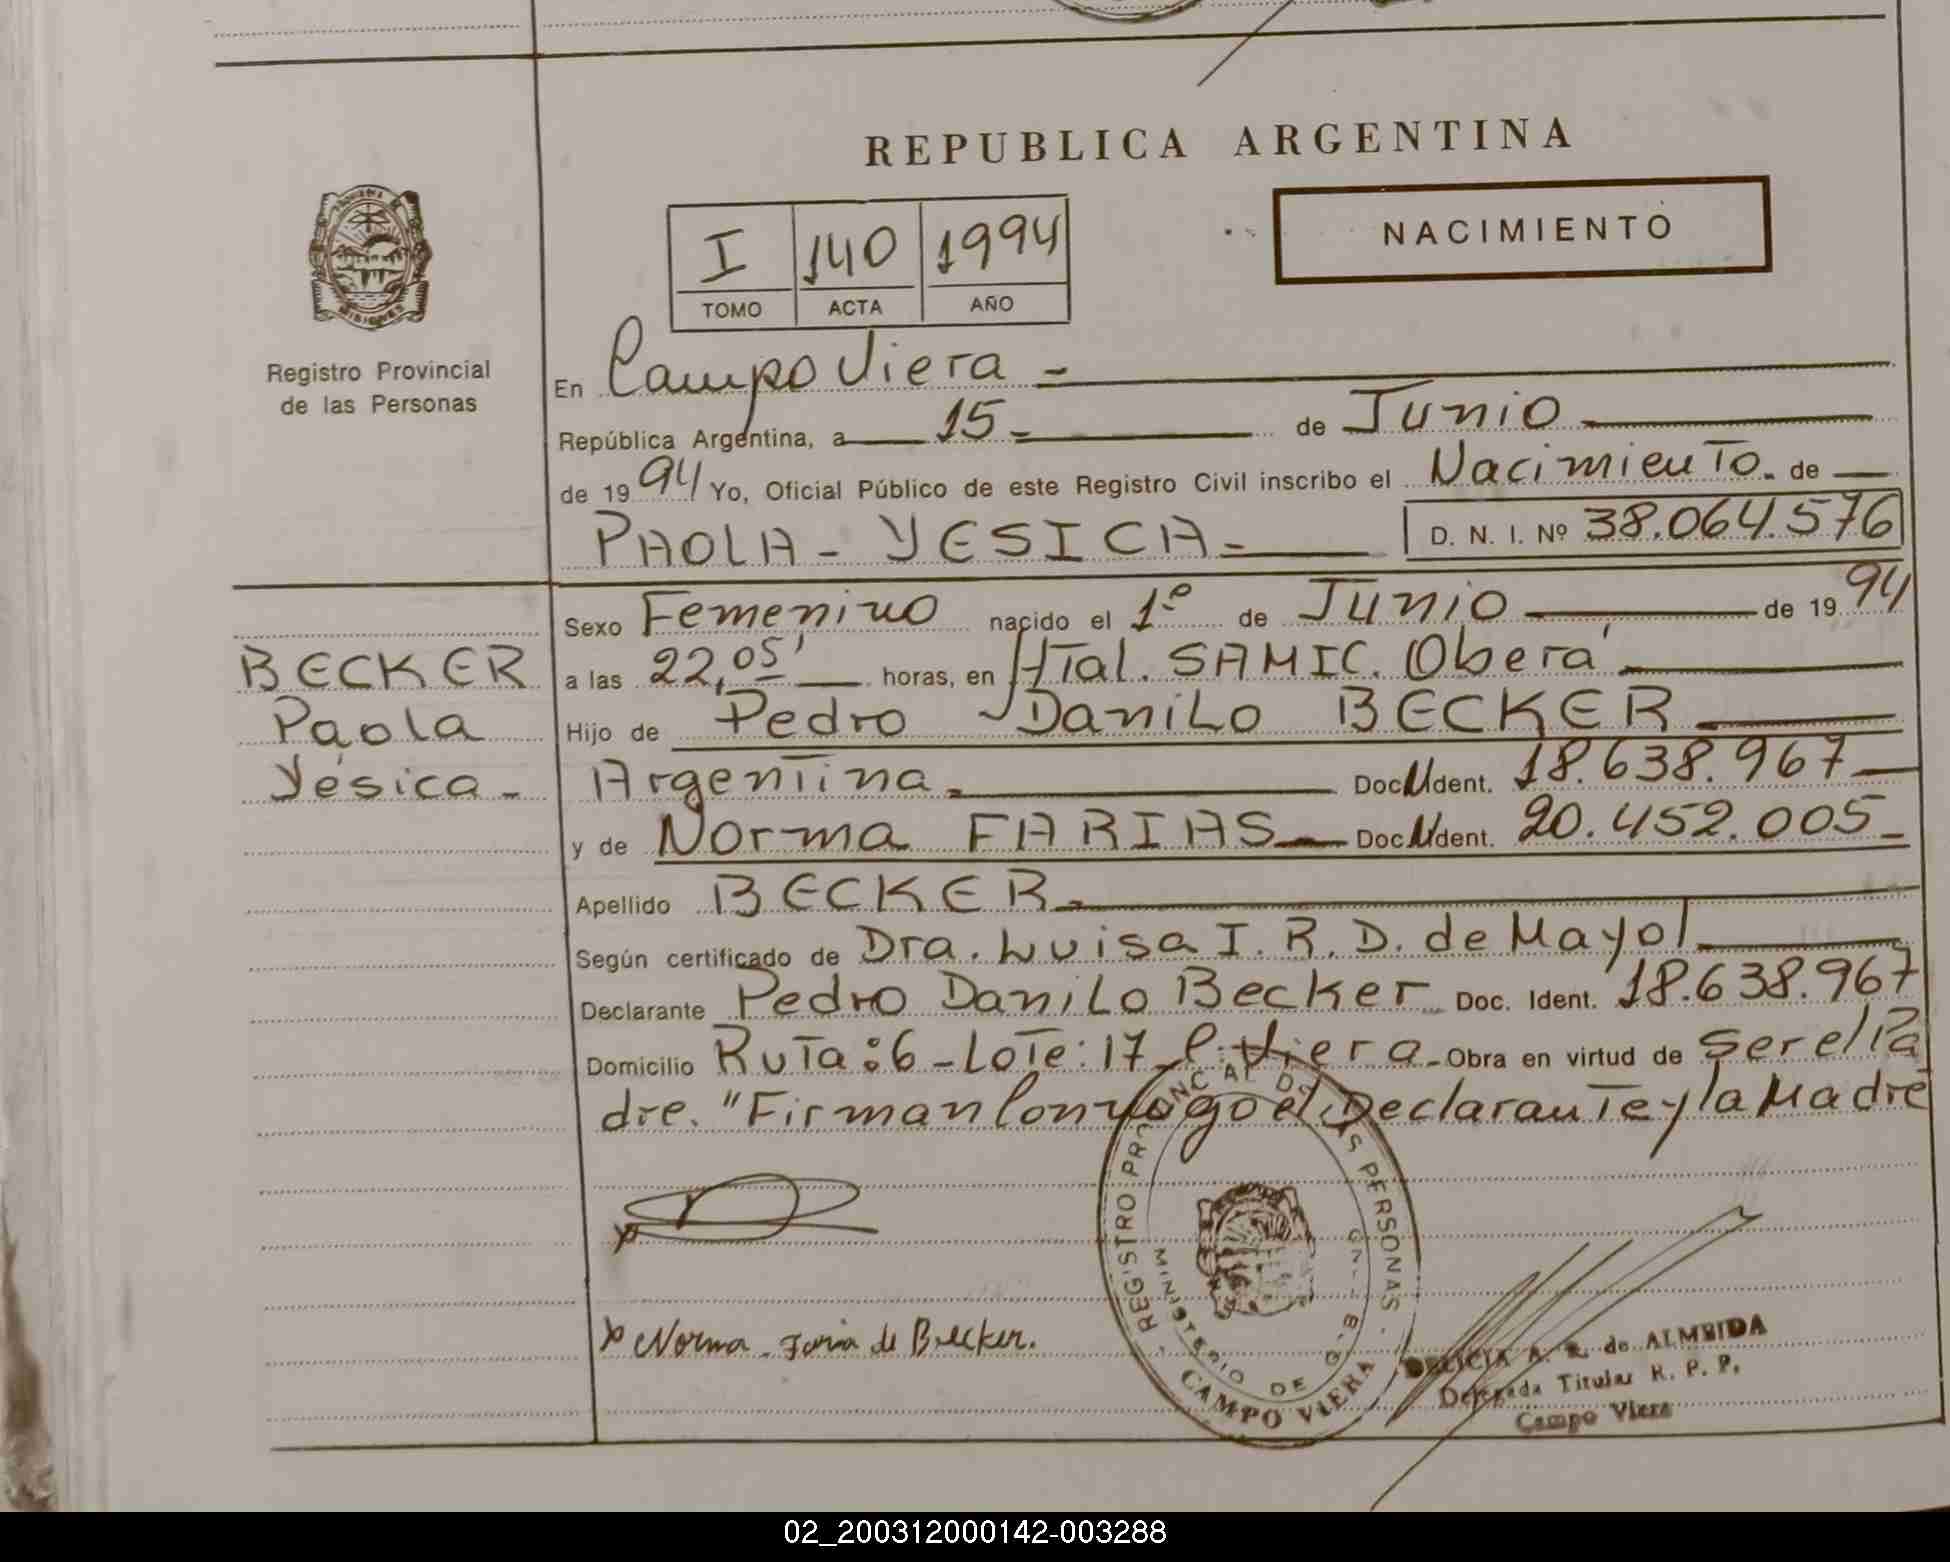 REPUBLICA ARGENTINA
NACIMIENTO
I 140 1994
TOMO ACTA AÑO
MISIONES
Registro Provincial
de las Personas
En Campo Viera -
República Argentina, a 15 - de Junio
de 1994 Yo, Oficial Público de este Registro Civil inscribo el Nacimiento. de
PAOLA - YESICA - D. N. I. Nº 38.064.576
BECKER
Paola
Yésica -
Sexo Femenino nacido el 1º de Junio de 1994
a las 22,05' horas, en Htal. SAMIC. Oberá
Hijo de Pedro Danilo BECKER
Argentina. Doc. Ident. 18.638.967
y de Norma FARIAS Doc. Ident. 20.452.005 -
Apellido BECKER -
Según certificado de Dra. Luisa I. R. D. de Mayol
Declarante Pedro Danilo Becker Doc. Ident. 18.638.967
Domicilio Ruta: 6 - Lote: 17 C. Viera - Obra en virtud de ser el Pa
dre. "Firman conmigo el Declarante y la Madre
REGISTRO PROVINCIAL DE LAS PERSONAS
MINISTERIO DE
CAMPO VIERA
x Norma - Faria de Becker.
DELICIA A. R. de ALMEIDA
Delegada Titular R. P. P.
Campo Viera
02_200312000142-003288